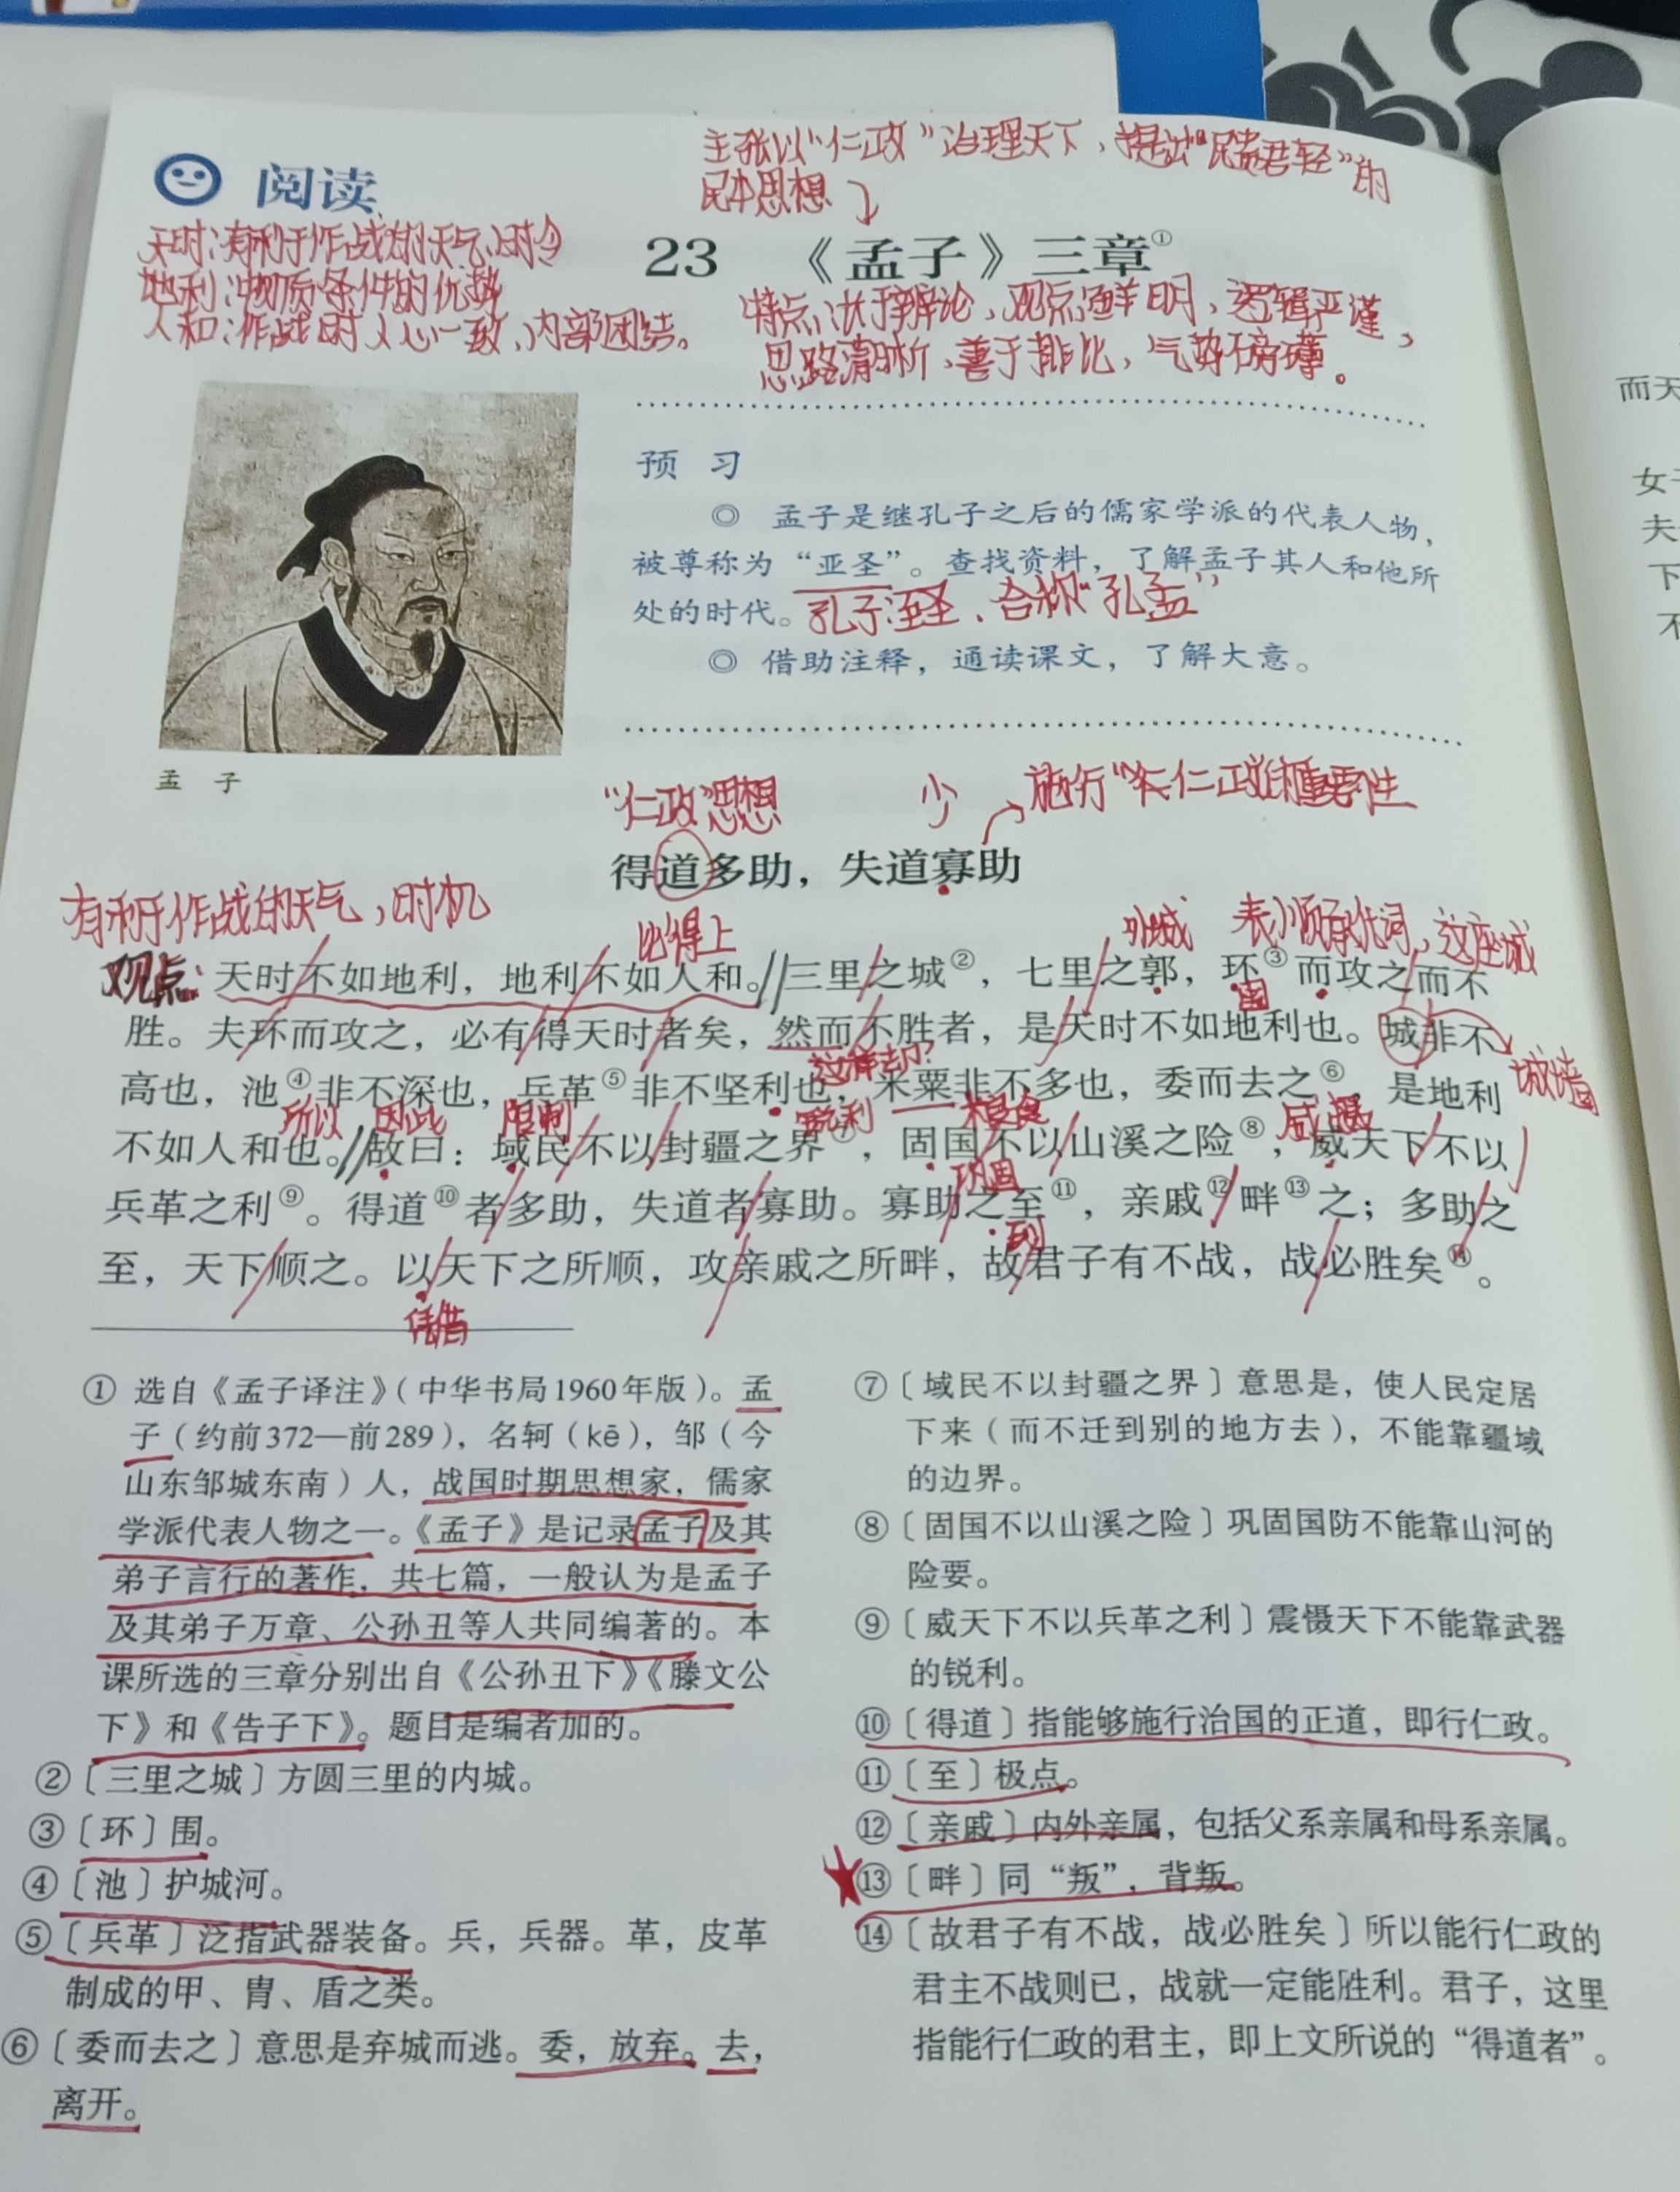 主张以“仁政”治理天下，提出“民贵君轻”的
民本思想
阅读
天时：有利于作战的天气、时令
地利：物质条件的优越
人和：作战时人心一致、内部团结。
23 《孟子》三章①
特点：长于辩论、观点鲜明、逻辑严谨，
思路清晰、善于排比，气势磅礴。
预 习
◎ 孟子是继孔子之后的儒家学派的代表人物，
被尊称为“亚圣”。查找资料，了解孟子其人和他所
处的时代。
孔子：至圣、合称“孔孟”
◎ 借助注释，通读课文，了解大意。
孟 子
“仁政”思想
少
施行
仁政
重要性
得道多助，失道寡助
有利于作战的天气，时机
比得上
外城
表顺承
代词，这座城
观点：
天时不如地利，地利不如人和。三里之城②，七里之郭，环③而攻之而不
围
胜。夫环而攻之，必有得天时者矣，然而不胜者，是天时不如地利也。城非不
这样却
城墙
高也，池④非不深也，兵革⑤非不坚利也，米粟非不多也，委而去之⑥，是地利
所以 因此
限制
锐利
粮食
威慑
不如人和也。故曰：域民不以封疆之界⑦，固国不以山溪之险⑧，威天下不以
巩固
兵革之利⑨。得道⑩者多助，失道者寡助。寡助之至⑪，亲戚⑫畔⑬之；多助之
到
至，天下顺之。以天下之所顺，攻亲戚之所畔，故君子有不战，战必胜矣⑭。
凭借
① 选自《孟子译注》（中华书局1960年版）。孟
子（约前372—前289），名轲（kē），邹（今
山东邹城东南）人，战国时期思想家，儒家
学派代表人物之一。《孟子》是记录孟子及其
弟子言行的著作，共七篇，一般认为是孟子
及其弟子万章、公孙丑等人共同编著的。本
课所选的三章分别出自《公孙丑下》《滕文公
下》和《告子下》。题目是编者加的。
②〔三里之城〕方圆三里的内城。
③〔环〕围。
④〔池〕护城河。
⑤〔兵革〕泛指武器装备。兵，兵器。革，皮革
制成的甲、胄、盾之类。
⑥〔委而去之〕意思是弃城而逃。委，放弃。去，
离开。
⑦〔域民不以封疆之界〕意思是，使人民定居
下来（而不迁到别的地方去），不能靠疆域
的边界。
⑧〔固国不以山溪之险〕巩固国防不能靠山河的
险要。
⑨〔威天下不以兵革之利〕震慑天下不能靠武器
的锐利。
⑩〔得道〕指能够施行治国的正道，即行仁政。
⑪〔至〕极点。
⑫〔亲戚〕内外亲属，包括父系亲属和母系亲属。
⑬〔畔〕同“叛”，背叛。
⑭〔故君子有不战，战必胜矣〕所以能行仁政的
君主不战则已，战就一定能胜利。君子，这里
指能行仁政的君主，即上文所说的“得道者”。
而天
女子
夫
下
不